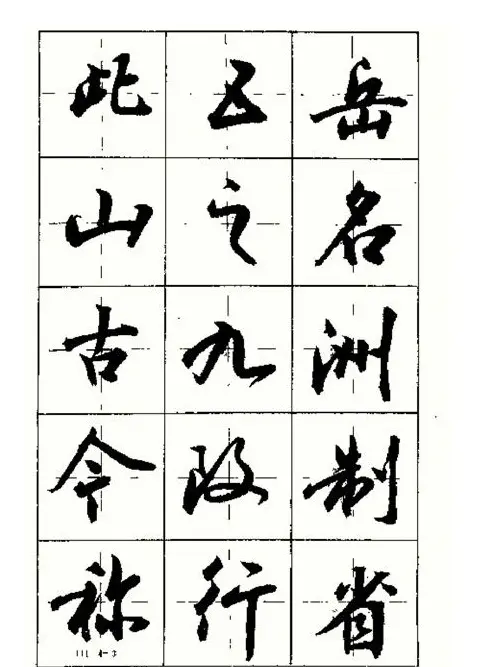 此五岳
山之名
古九洲
今改制
称行省